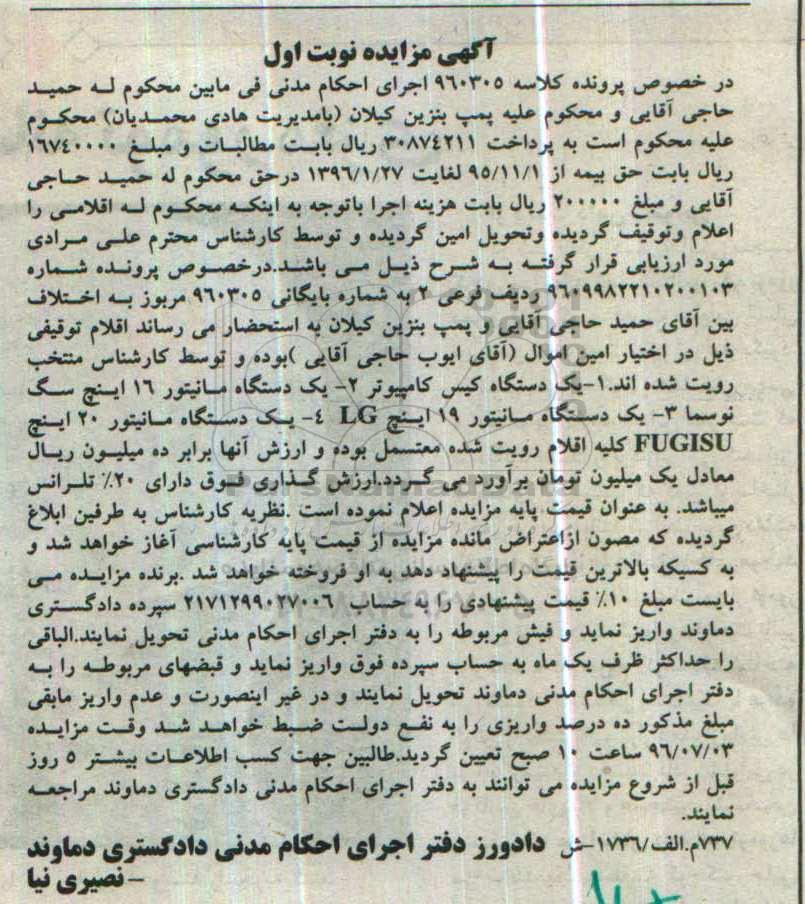 آگهی مزایده نوبت اول
در خصوص پرونده کلاسه ۹۶۰۳۰۵ اجرای احکام مدنی فی مابین محکوم له حمید
حاجی آقایی و محکوم علیه پمپ بنزین کیلان (بامدیریت هادی محمدیان) محکوم
علیه محکوم است به پرداخت ۳۰۸۷٤۲۱۱ ریال بابت مطالبات و مبلغ ۱٦۷٤۰۰۰۰
ریال بابت حق بیمه از ۹۵/۱۱/۱ لغایت ۱۳۹٦/۱/۲۷ درحق محکوم له حمید حاجی
آقایی و مبلغ ۲۰۰۰۰۰ ریال بابت هزینه اجرا باتوجه به اینکه محکوم له اقلامی را
اعلام وتوقیف گردیده وتحویل امین گردیده و توسط کارشناس محترم علی مرادی
مورد ارزیابی قرار گرفته به شرح ذیل می باشد.درخصوص پرونده شماره
۹٦۰۹۹۸۲۲۱۰۲۰۰۱۰۳ ردیف فرعی ۲ به شماره بایگانی ۹٦۰۳۰۵ مربوز به اختلاف
بین آقای حمید حاجی آقایی و پمپ بنزین کیلان به استحضار می رساند اقلام توقیفی
ذیل در اختیار امین اموال (آقای ایوب حاجی آقایی )بوده و توسط کارشناس منتخب
رویت شده اند.۱-یک دستگاه کیس کامپیوتر ۲- یک دستگاه مانیتور ۱٦ اینچ سگ
نوسما ۳- یک دستگاه مانیتور ۱۹ اینچ LG ٤- یک دستگاه مانیتور ۲۰ اینچ
FUGISU کلیه اقلام رویت شده معتسمل بوده و ارزش آنها برابر ده میلیون ریال
معادل یک میلیون تومان برآورد می گردد.ارزش گذاری فوق دارای ۲۰٪ تلرانس
میباشد. به عنوان قیمت پایه مزایده اعلام نموده است .نظریه کارشناس به طرفین ابلاغ
گردیده که مصون ازاعتراض مانده مزایده از قیمت پایه کارشناسی آغاز خواهد شد و
به کسیکه بالاترین قیمت را پیشنهاد دهد به او فروخته خواهد شد .برنده مزایده می
بایست مبلغ ۱۰٪ قیمت پیشنهادی را به حساب ۲۱۷۱۲۹۹۰۲۷۰۰٦ سپرده دادگستری
دماوند واریز نماید و فیش مربوطه را به دفتر اجرای احکام مدنی تحویل نمایند.الباقی
را حداکثر ظرف یک ماه به حساب سپرده فوق واریز نماید و قبضهای مربوطه را به
دفتر اجرای احکام مدنی دماوند تحویل نمایند و در غیر اینصورت و عدم واریز مابقی
مبلغ مذکور ده درصد واریزی را به نفع دولت ضبط خواهد شد وقت مزایده
۹٦/۰۷/۰۳ ساعت ۱۰ صبح تعیین گردید.طالبین جهت کسب اطلاعات بیشتر ۵ روز
قبل از شروع مزایده می توانند به دفتر اجرای احکام مدنی دادگستری دماوند مراجعه
نمایند.
۷۳۷م.الف/۱۷۳٦-ش دادورز دفتر اجرای احکام مدنی دادگستری دماوند
- نصیری نیا